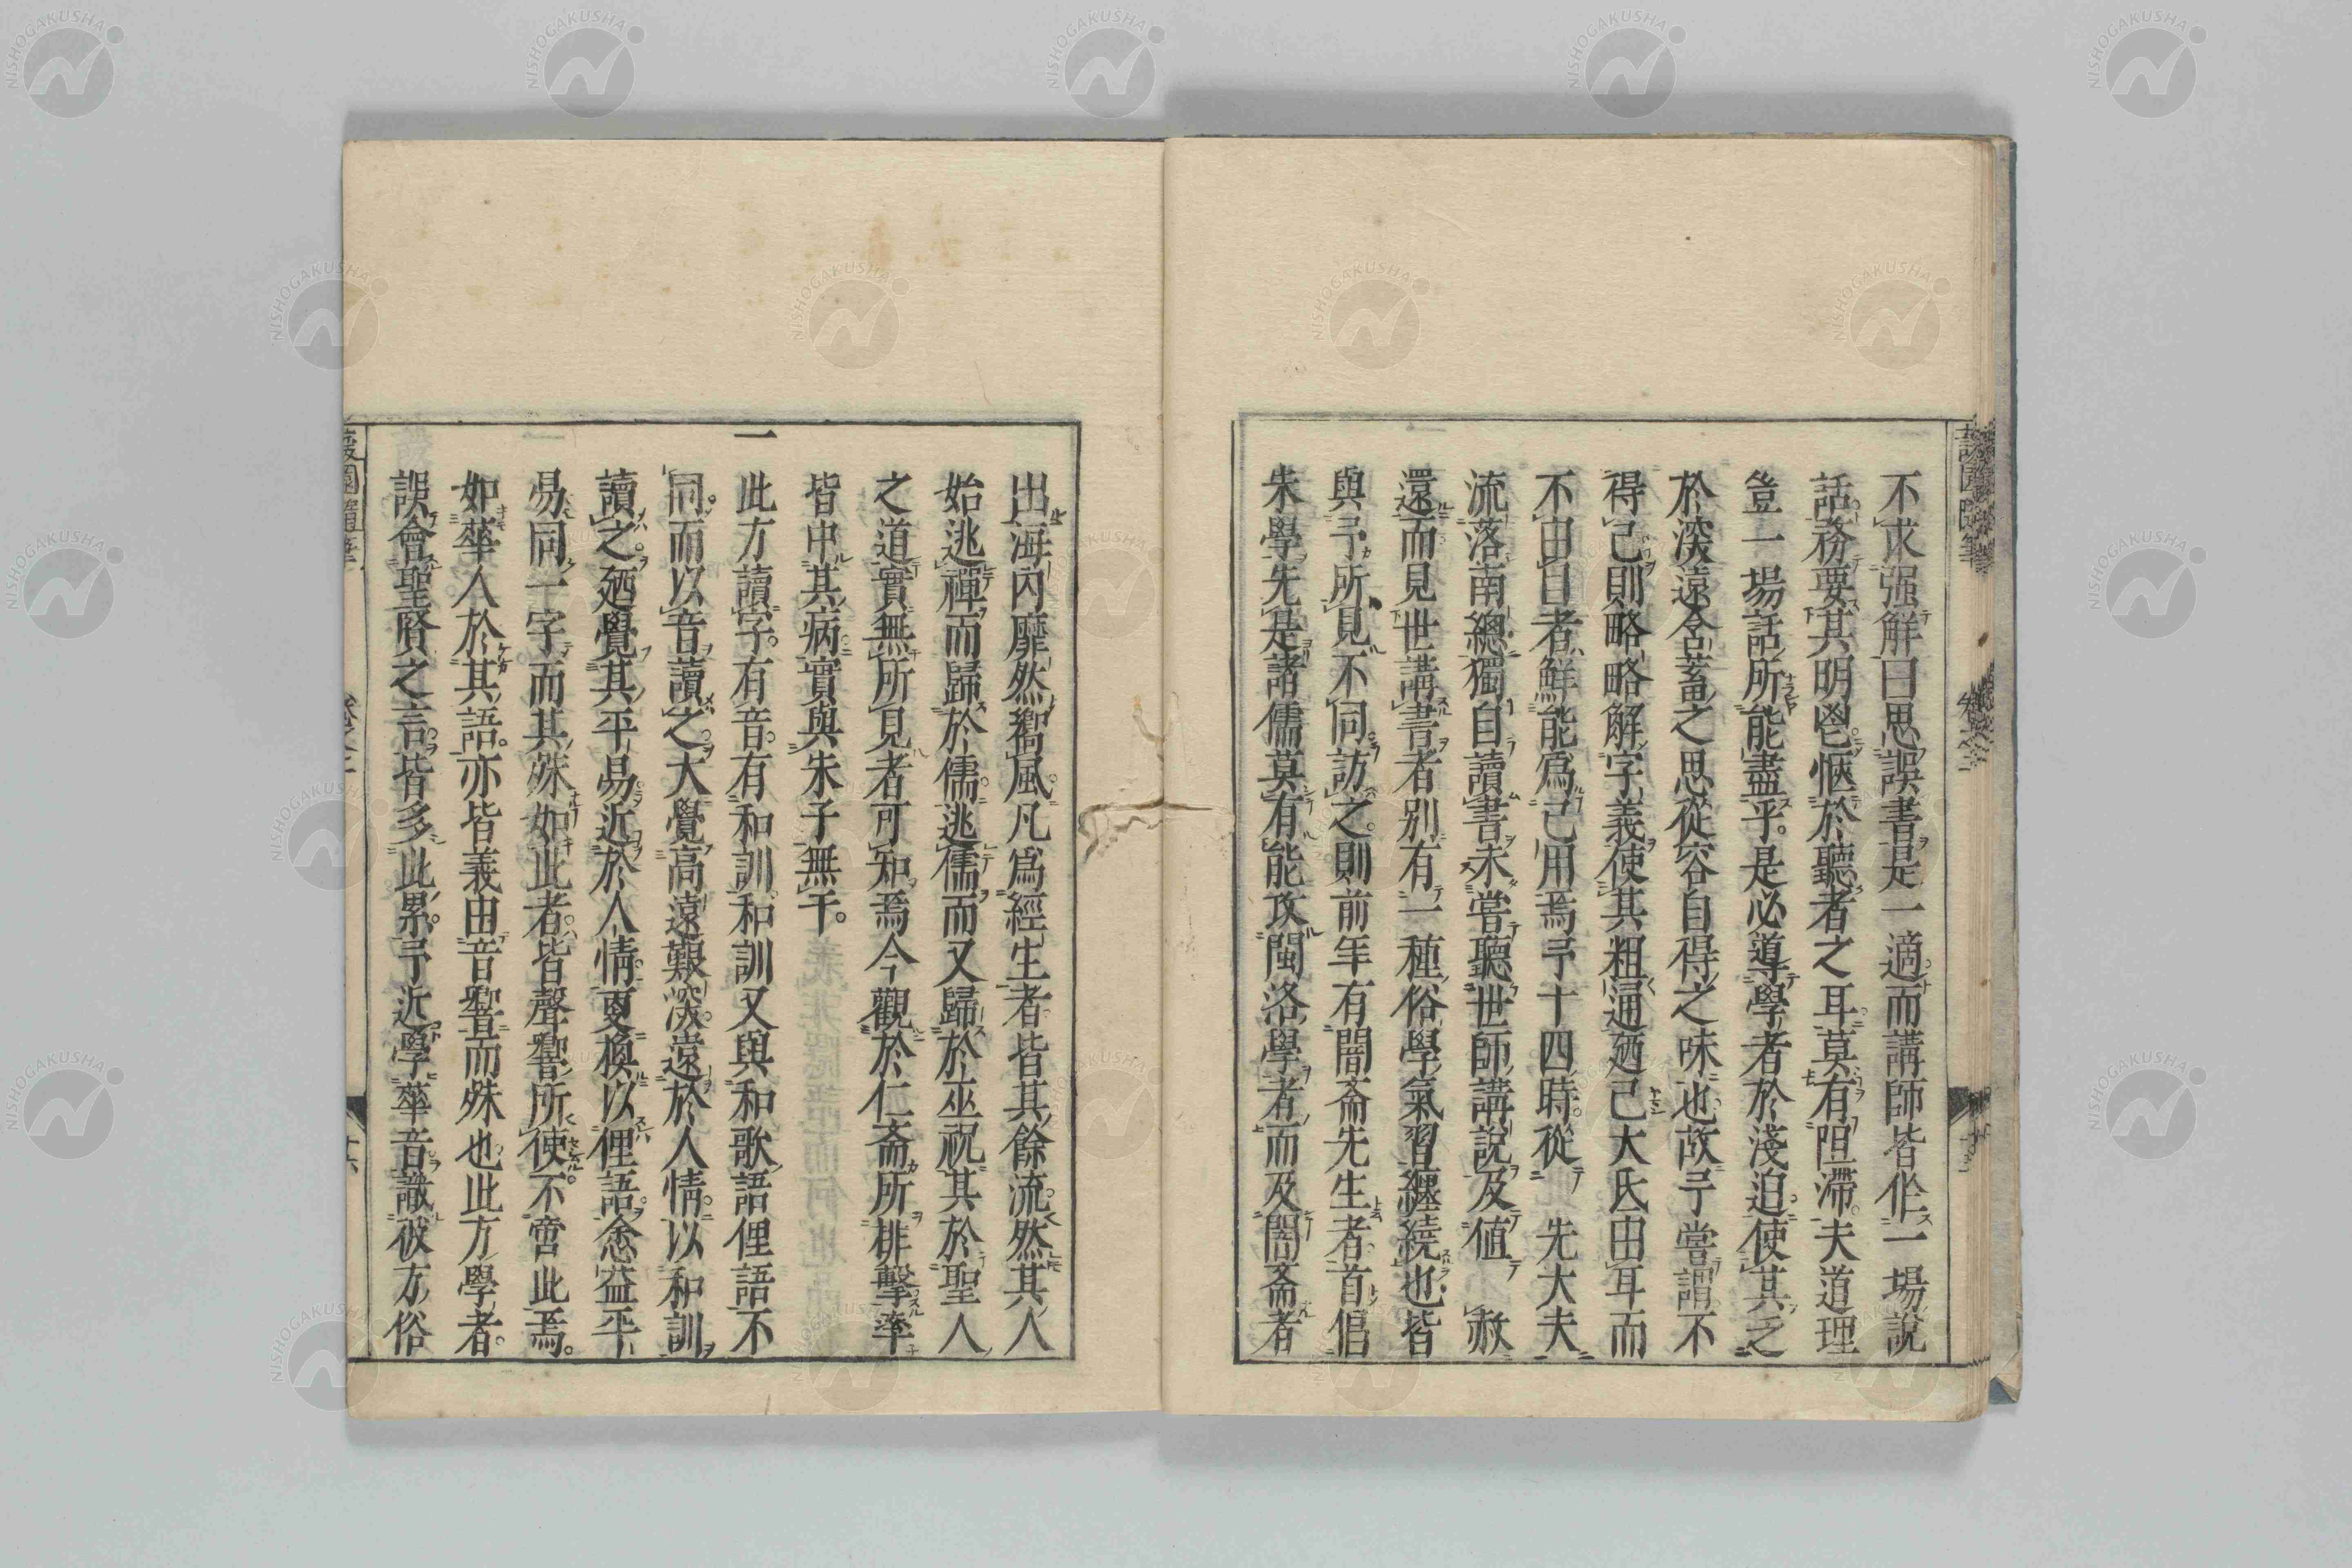 不求强解曰思誤書是一適而講師皆作一場說
話務要其明鬯愜於聽者之耳莫有阻滯夫道理
豈一場話所能盡乎是必導學者於淺迫使其之
於深遠含蓄之思從容自得之味也故予嘗謂不
得已則略略解字義使其粗通廼已大氐由耳而
不由目者鮮能爲己用焉予十四時從 先大夫
流落南總獨自讀書未嘗聽世師講說及值 赦
還而見世講書者別有一種俗學氣習纏繞也皆
與予所見不同訪之則前年有闇斎先生者首倡
朱學先是諸儒莫有能攻閩洛學者而及闇斎者
出海內靡然嚮風凡爲經生者皆其餘流然其人
始逃禪而歸於儒逃儒而又歸於巫祝其於聖人
之道實無所見者可知焉今觀於仁斎所排擊率
皆中其病實與朱子無干。
一 此方讀字。有音。有和訓。和訓又與和歌語俚語不
同。而以音讀之。大覺高遠艱深。遠於人情。以和訓
讀之。廼覺其平易近於人情。更換以俚語。愈益平
易。同一字而其殊如此者。皆聲響所使。不啻此焉。
如華人於其語。亦皆義由音響而殊也此方學者。
誤會聖賢之言。皆多此累。予近學華音識彼方俗
蘐園隨筆
NISHOGAKUSHA